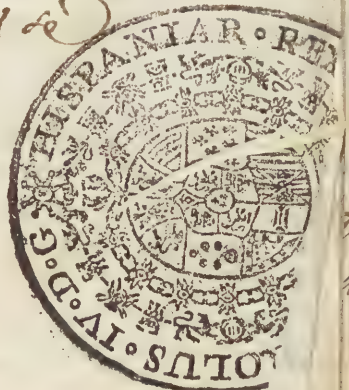 OLUS · IV · D · G · HISPANIAR · REX